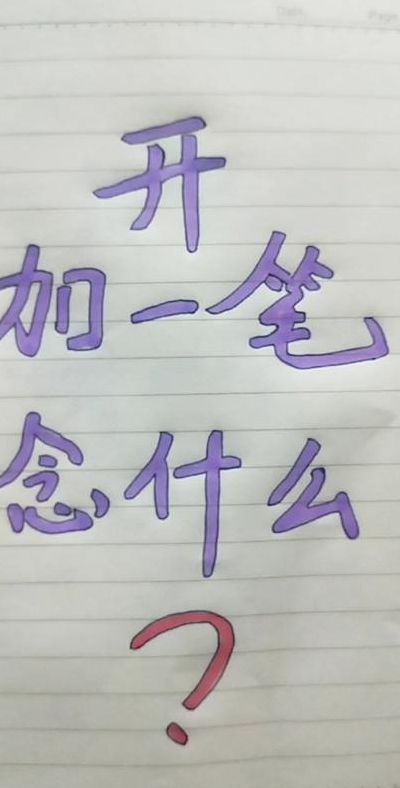 Date. Page
开
加一笔
念什么
?